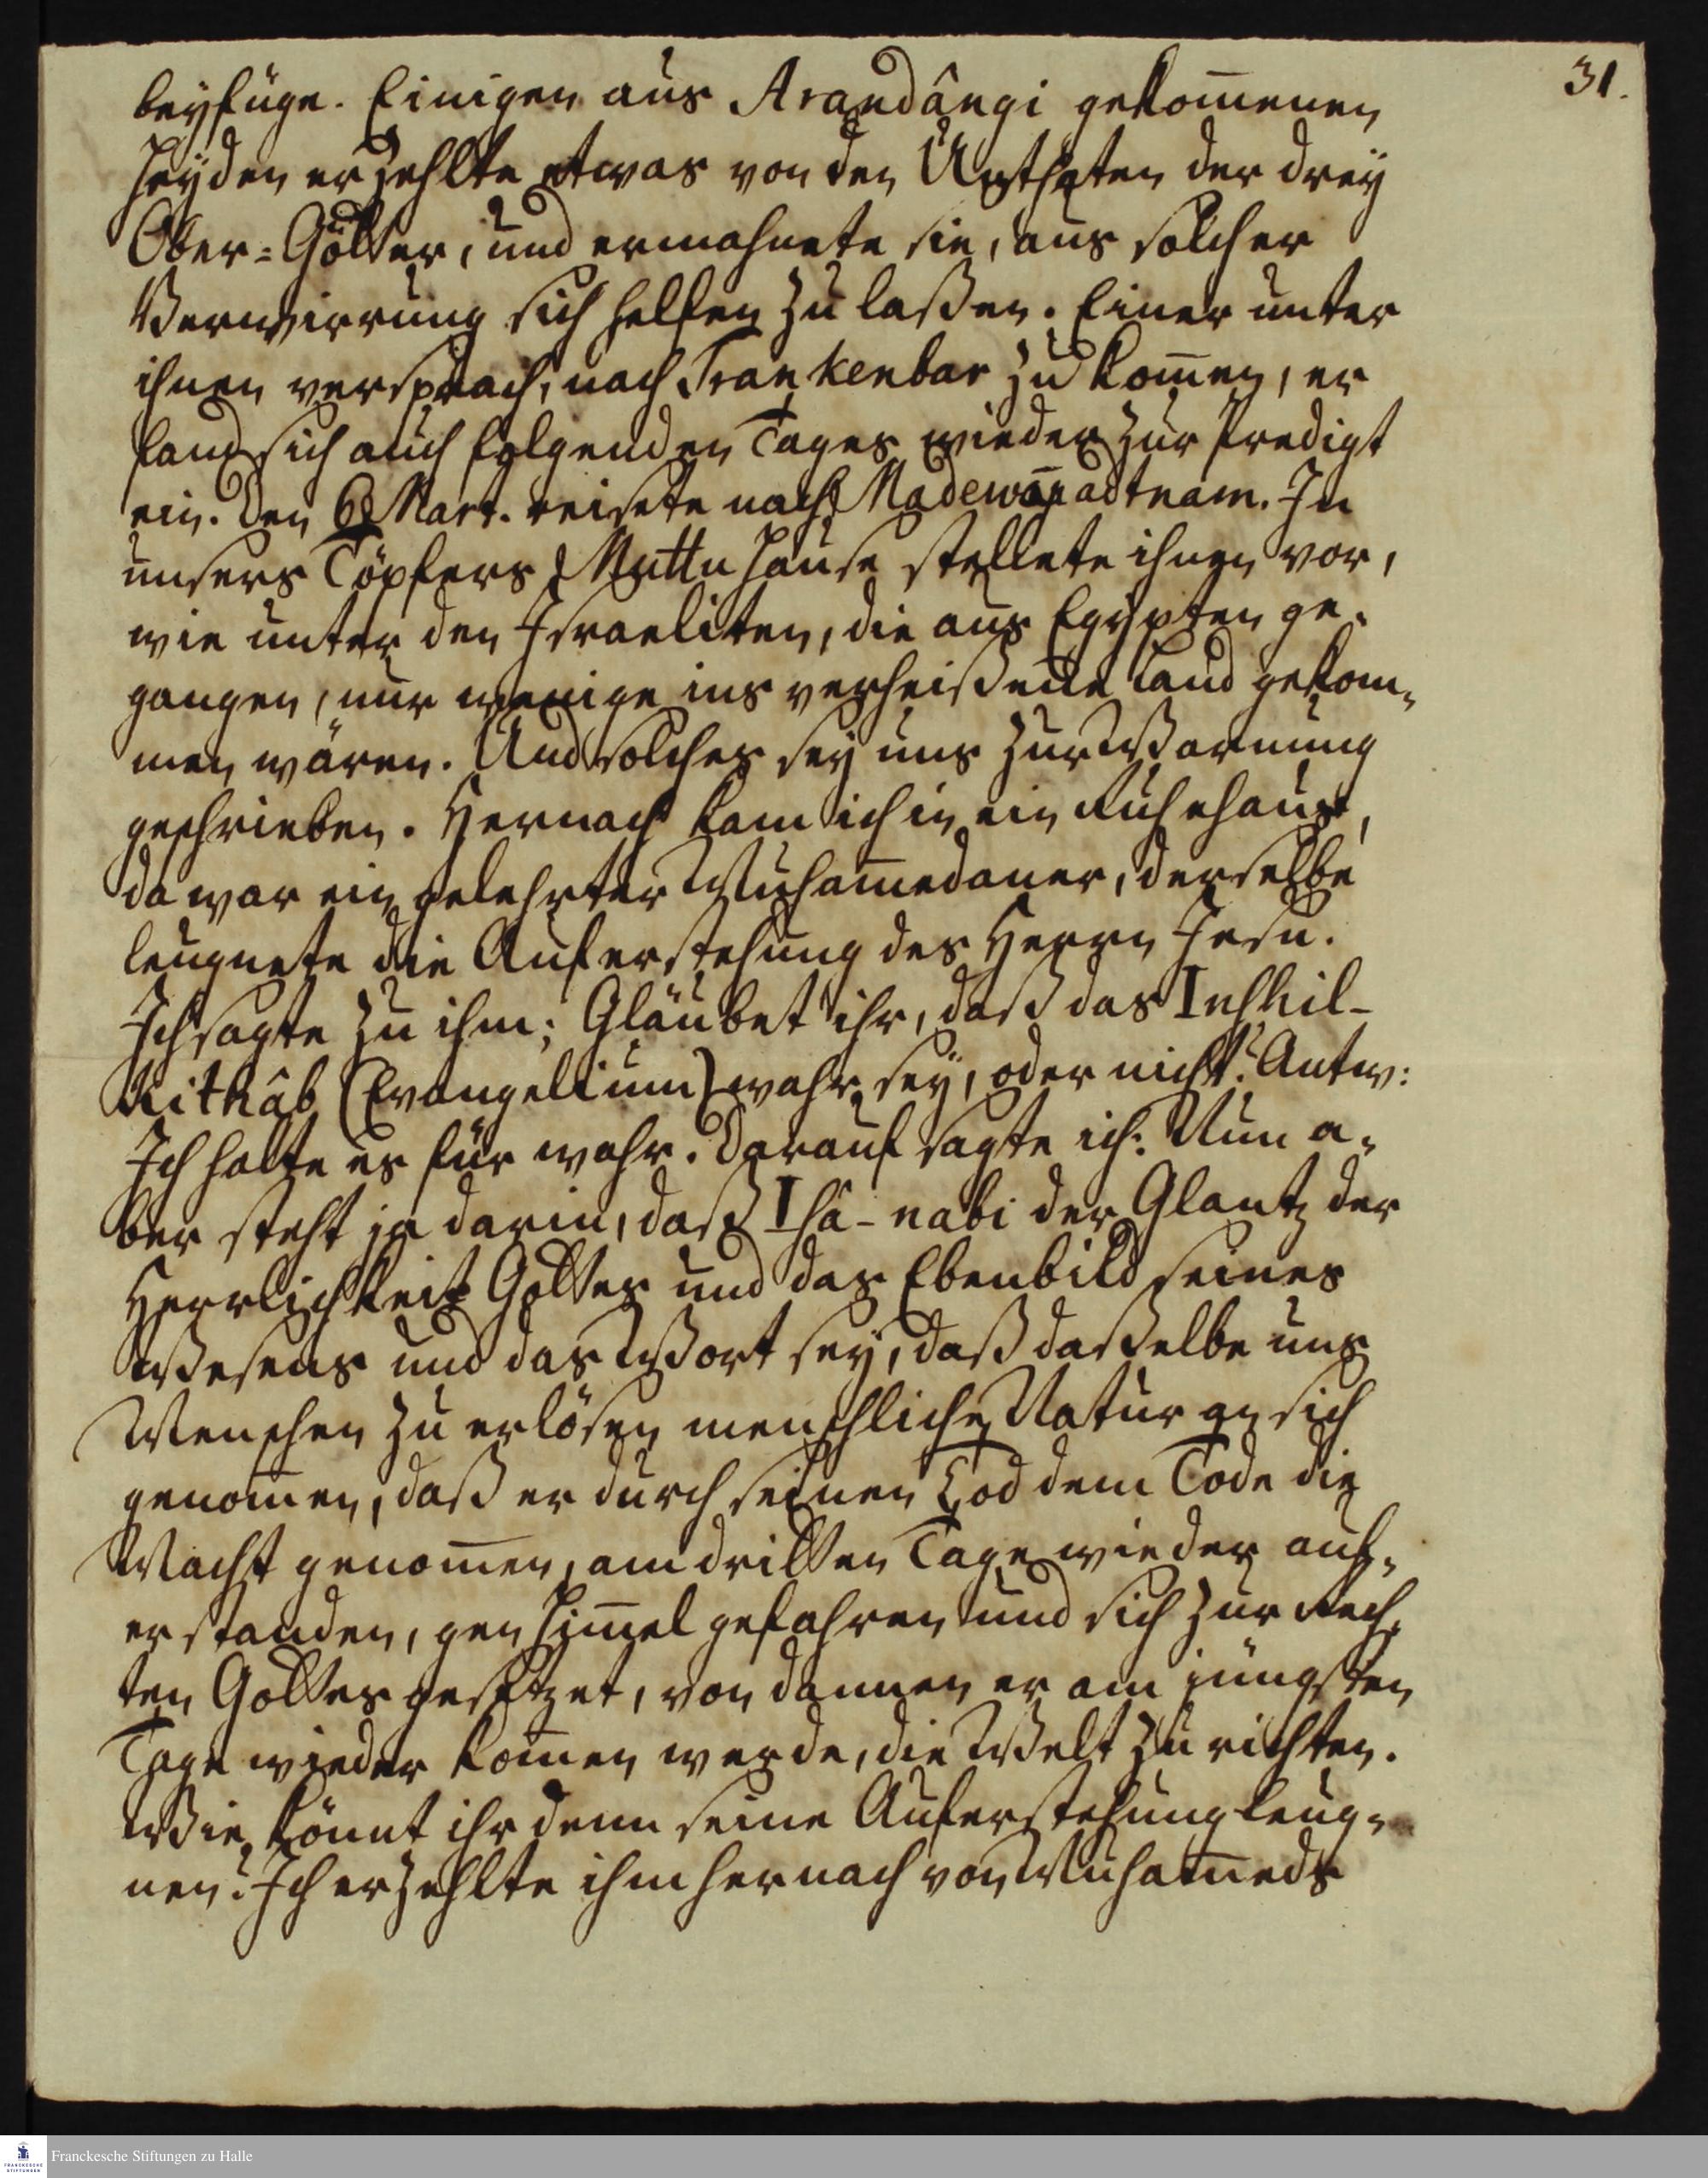 31.
beyfüge. Einigen aus Arandângi gekom̄enen
Heyden erzehlte etwas von den Unthaten der drey
Ober-Götter, und ermahnete sie, aus solcher
Verwirrung sich helfen zu laßen. Einer unter
ihnen versprach, nach Trankenbar zu kom̄en, er
fand sich auch folgenden Tages wieder zur Predigt
ein. Den 6 Mart. reisete nach Madewāpadtnam. In
unsers Töpfers Muttu Hause stellete ihnen vor,
wie unter den Israeliten, die aus Egypten ge-
gangen, nur wenige ins verheißene Land gekom-
men wären. Und solches sey uns zur Warnung
geschrieben. Hernach kam ich in ein Ruhehaus,
da war ein gelehrter Muham̄edaner, derselbe
leugnete die Auferstehung des Herrn Jesu.
Ich sagte zu ihm: Gläubet ihr, daß das Inschil-
Kithâb (Evangelium) wahr sey, oder nicht? Antw:
Ich halte es für wahr. Darauf sagte ich: Nun a-
ber steht ja darin, daß Isâ-nabi der Glantz der
Herrlichkeit Gottes und das Ebenbild seines
Wesens und das Wort sey, daß daßelbe uns
Menschen zu erlösen menschliche Natur an sich
genom̄en, daß er durch seinen Tod dem Tode die
Macht genom̄en, am dritten Tage wieder auf-
erstanden, gen Him̄el gefahren und sich zur Rech-
ten Gottes gesetzet, von dannen er am jüngsten
Tage wieder kom̄en werde, die Welt zu richten.
Wie könnt ihr denn seine Auferstehung leug-
nen? Ich erzehlte ihm hernach von Muham̄eds
Franckesche Stiftungen zu Halle